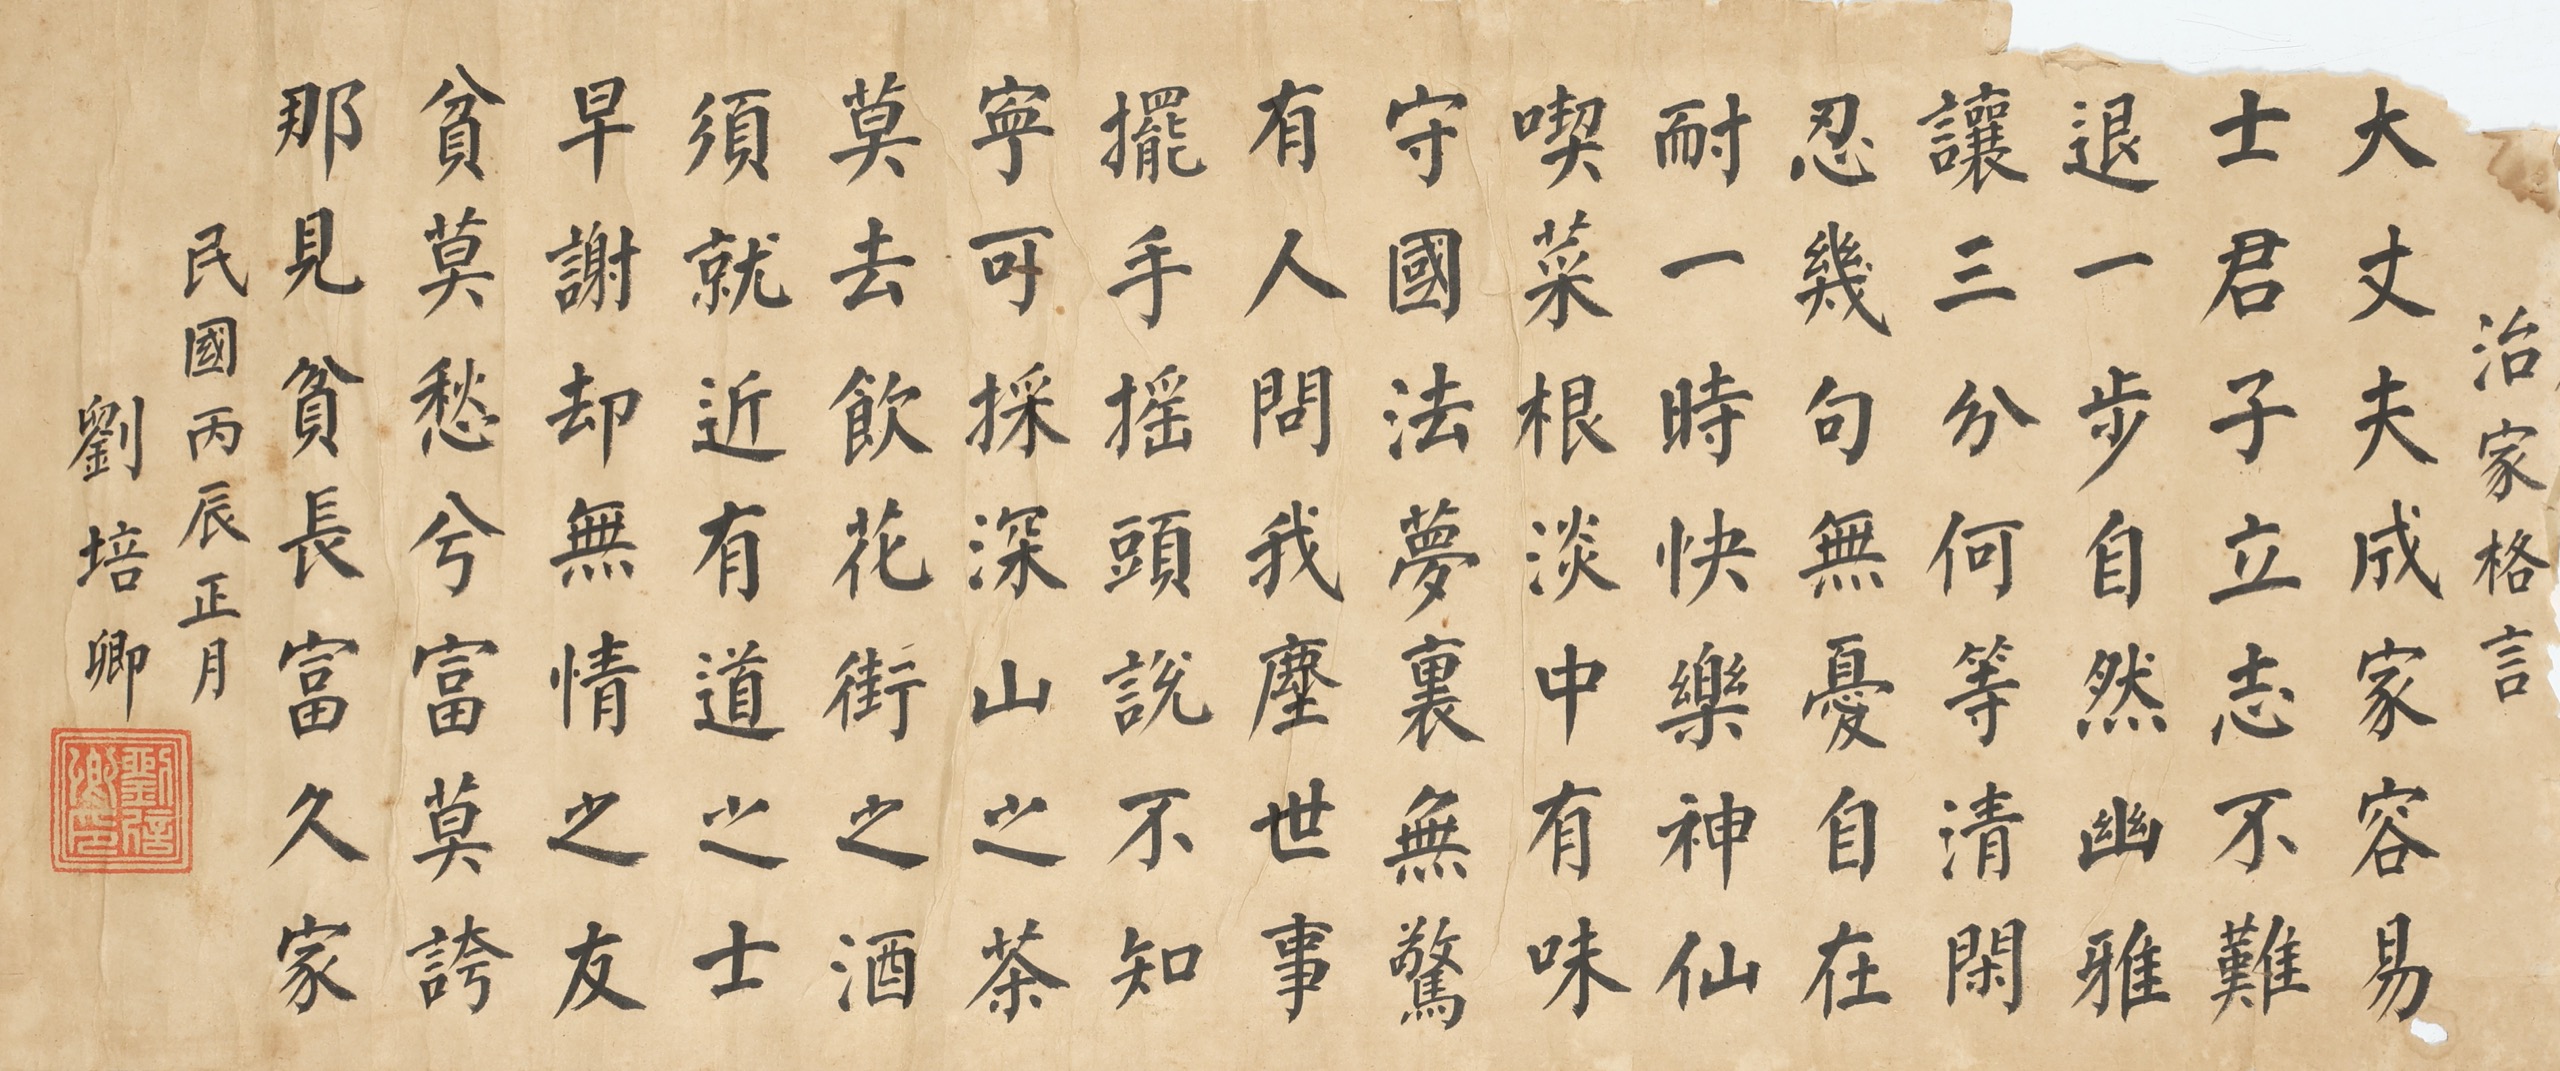 治家格言
大丈夫成家容易
士君子立志不難
退一步自然幽雅
讓三分何等清閑
忍幾句無憂自在
耐一時快樂神仙
喫菜根淡中有味
守國法夢裏無驚
有人問我塵世事
擺手搖頭說不知
寧可採深山之茶
莫去飲花街之酒
須就近有道之士
早謝却無情之友
貧莫愁兮富莫誇
那見貧長富久家
民國丙辰正月
劉培卿